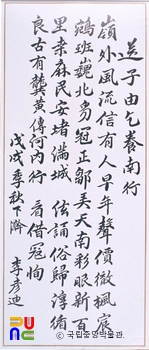 送子由乞養南行
嶺外風流信有人早年聲價徹楓宸
鵷班巍北豸冠正美天南彩服新百
里桑麻民安堵滿城絃誦俗歸淳循
良古有龔黃傳河內行看借寇恂
戊戌季秋下澣 李彦迪
© 국립중앙박물관.